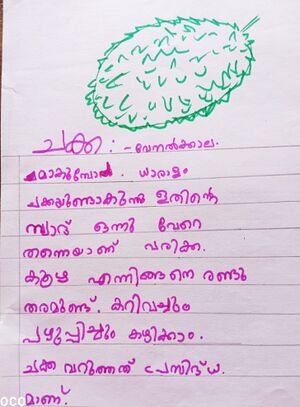 ചക്ക : - വേനൽക്കാല
മാകുമ്പോൾ. ധാരാളം
ചക്കയുണ്ടാകുന്നു ഇതിന്റെ
സ്വാദ് ഒന്നു വേറെ
തന്നെയാണ് വരിക്ക.
കൂഴ എന്നിങ്ങനെ രണ്ടു
തരമുണ്ട്. കറിവച്ചും
പഴുപ്പിച്ചും കഴിക്കാം.
ചക്ക വറുത്തത് പ്രസിദ്ധ
മാണ്.
oco